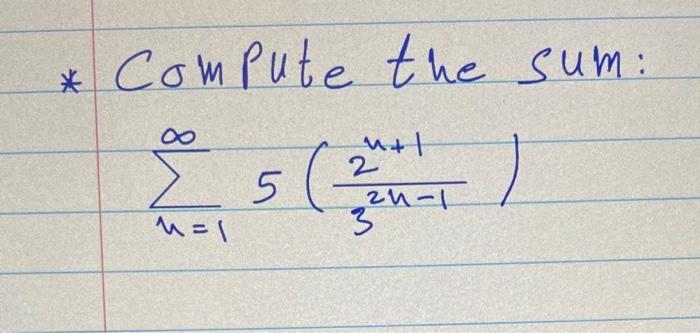 * Compute the sum:
∞
∑ 5 ( 2^{n+1} / 3^{2n-1} )
n=1